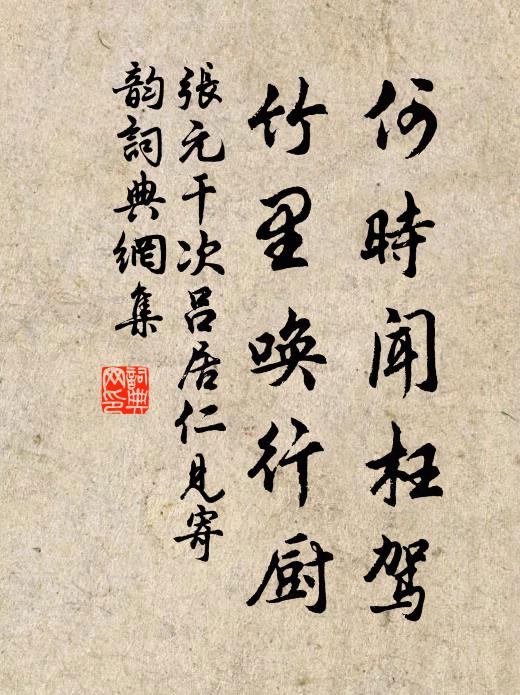 何時聞枉駕
竹里喚行厨
張元干次呂居仁見寄
韵詞典網集
詞典
网印